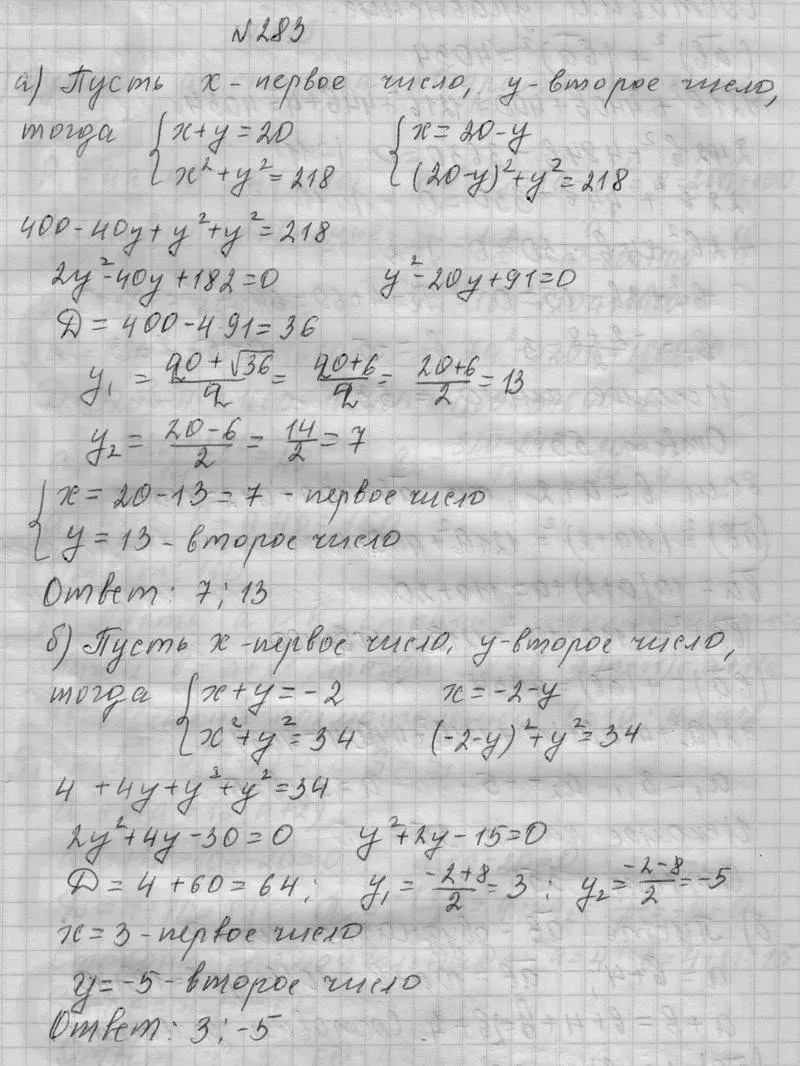 №283
а) Пусть x - первое число, y - второе число,
тогда { x+y=20 { x=20-y
x²+y²=218 (20-y)²+y²=218
400-40y+y²+y²=218
2y²-40y+182=0 y²-20y+91=0
Д=400-4·91=36
y₁ = (20+√36)/2 = (20+6)/2 = (20+6)/2 = 13
y₂ = (20-6)/2 = 14/2 = 7
{ x=20-13=7 - первое число
y=13 - второе число
Ответ: 7; 13
б) Пусть x - первое число, y - второе число,
тогда { x+y=-2 x=-2-y
x²+y²=34 (-2-y)²+y²=34
4+4y+y²+y²=34
2y²+4y-30=0 y²+2y-15=0
Д=4+60=64; y₁=(-2+8)/2=3; y₂=(-2-8)/2=-5
x=3 - первое число
y=-5 - второе число
Ответ: 3; -5